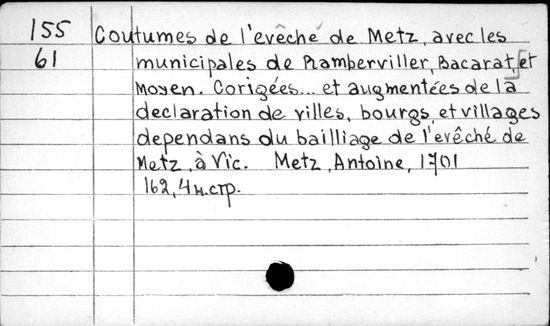 155 Coutumes de l'evêché de Metz, avec les
61 municipales de Ramberviller, Bacarat, et
Moyen. Corigées... et augmentées de la
declaration de villes, bourgs, et villages
dependans du bailliage de l'evêché de
Metz, à Vic. Metz, Antoine, 1701
162, 4 н. стр.